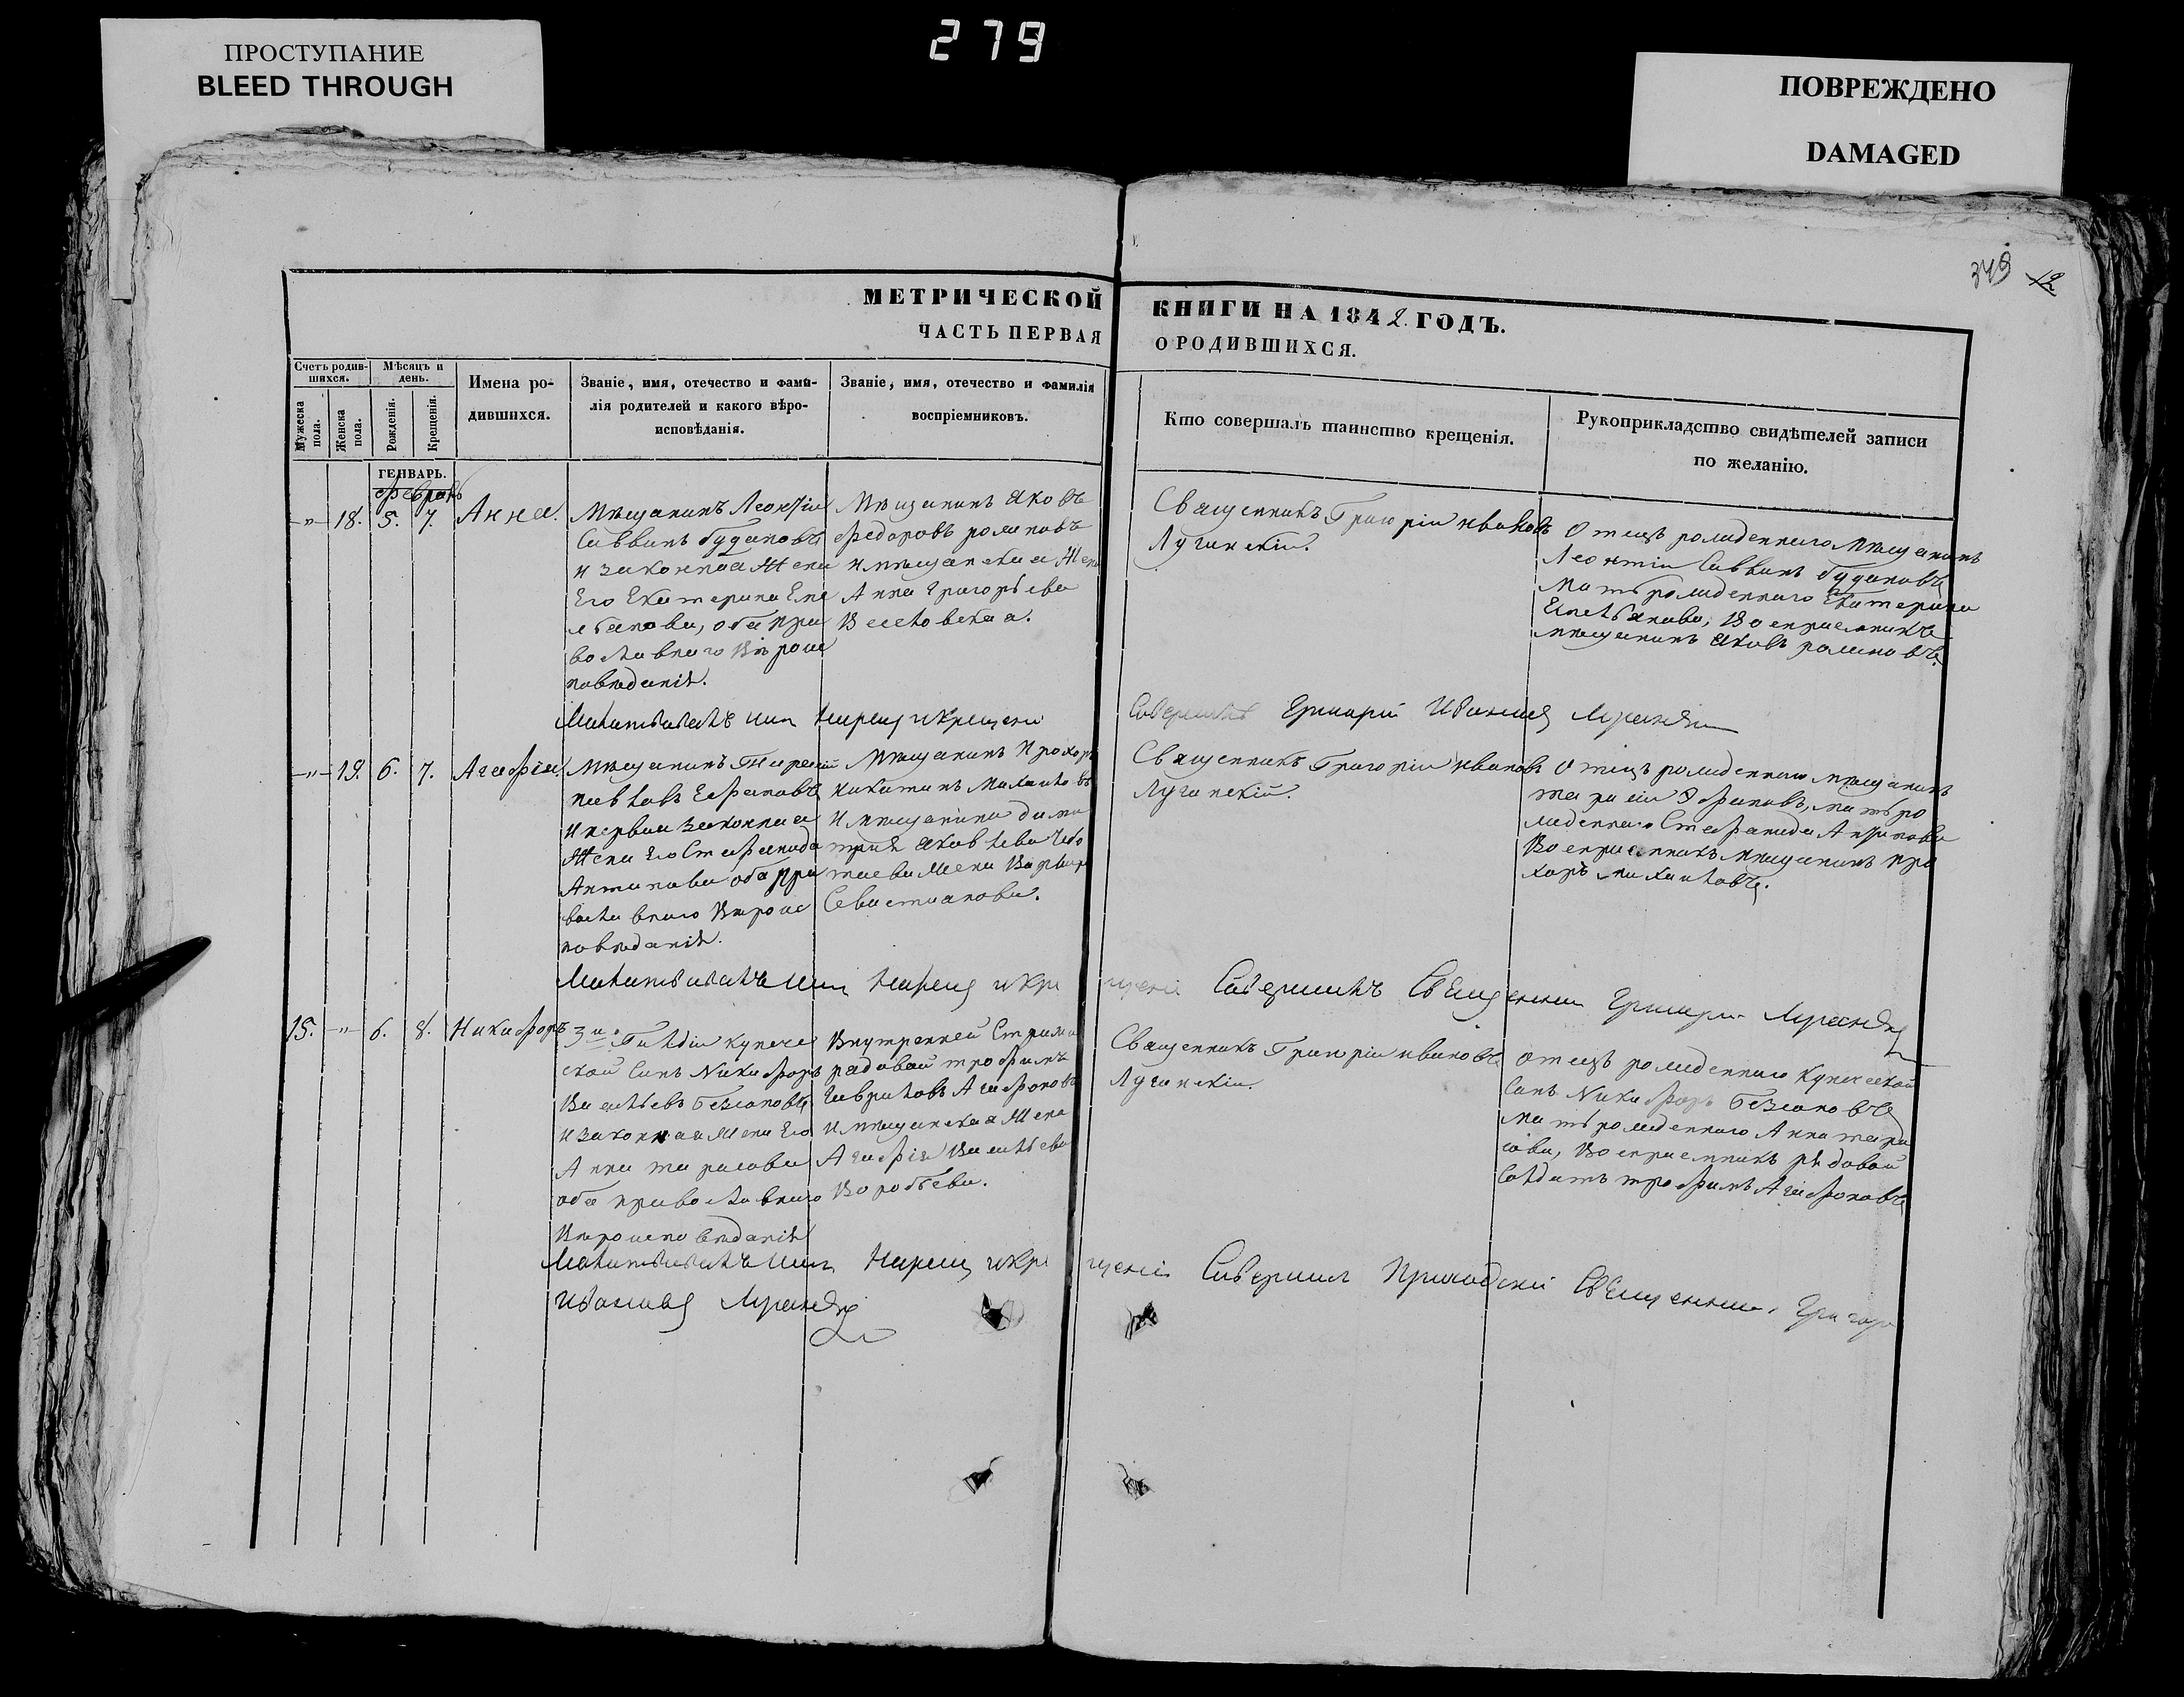 279
ПРОСТУПАНИЕ
BLEED THROUGH
ПОВРЕЖДЕНО
DAMAGED
349 12
МЕТРИЧЕСКОЙ КНИГИ НА 1842. ГОДЪ.
ЧАСТЬ ПЕРВАЯ О РОДИВШИХСЯ.
Счетъ родив-
шихся.
Мужеска пола.
Женска пола.
Мѣсяцъ и
день.
Рожденія.
Крещенія.
Имена ро-
дившихся.
Званіе, имя, отечество и фами-
лія родителей и какого вѣро-
исповѣданія.
Званіе, имя, отечество и фамилія
воспріемниковъ.
Кто совершалъ таинство крещенія.
Рукоприкладство свидѣтелей записи
по желанію.
ГЕНВАРЬ.
февраль
-"- 18. 5. 7. Анна.
Мѣщанинъ Леонтіи
Саввинъ будановъ
и законная Жена
Его Екатерина
обапра
вославнаго Вѣроис
повѣданія.
Мѣщанинъ Яковъ
Федоровъ романовъ
и мѣщанская Жена
Анна Григорьева
Священникъ Григоріи ивановъ
Лучинскіи.
Отецъ рожденнаго мѣщанинъ
Леонтіи Саввинъ будановъ
Мать рожденнаго Екатерина
Воспріемникъ
мѣщанинъ Яковъ романовъ
Молитвовалъ имя Нарещ и Крещени
Совершилъ Григорій Ивановъ
-"- 19. 6. 7. Агафія.
Мѣщанинъ Тарасій
павловъ Ефановъ
и первая законная
Жена Его Стефанида
Антипова оба пра
вославнаго Вѣроис
повѣданія.
Мѣщанинъ Прохоръ
никитинъ
и мѣщанина дими
трія Яковлева
жена Варвара
Севастианова.
Священникъ Григоріи ивановъ
Лучинскій.
Отецъ рожденнаго мѣщанинъ
тарасіи Ефановъ, мать ро
жденнаго Стефанида Антипова
Воспріемникъ мѣщанинъ Про
хоръ
Молитвовалъ имя Нарещ и Кре щеніе Совершилъ Священник Григори
15. -"- 6. 8. Никифоръ
3й Гильдіи купече
ской Сынъ Никифоръ
Васильевъ Безсоновъ
и законная жена Его
Анна тарасова
оба православнаго
Вѣроисповѣданія
Внутренней Стражи
радовой трофимъ
Гавриловъ Агафоновъ
и мѣщанская Жена
Агафія Васильева
Воробьева.
Священникъ Григоріи ивановъ
Лучинскіи.
Отецъ рожденнаго Купеческой
Сынъ Никифоръ Безсоновъ
мать рожденнаго Анна тара
сова, Воспріемникъ рядовой
Солдатъ трофимъ Агафоновъ
Молитвовалъ имя Нарещ и Кре щеніе Совершил Приходскій Священник Григорі
Ивановъ